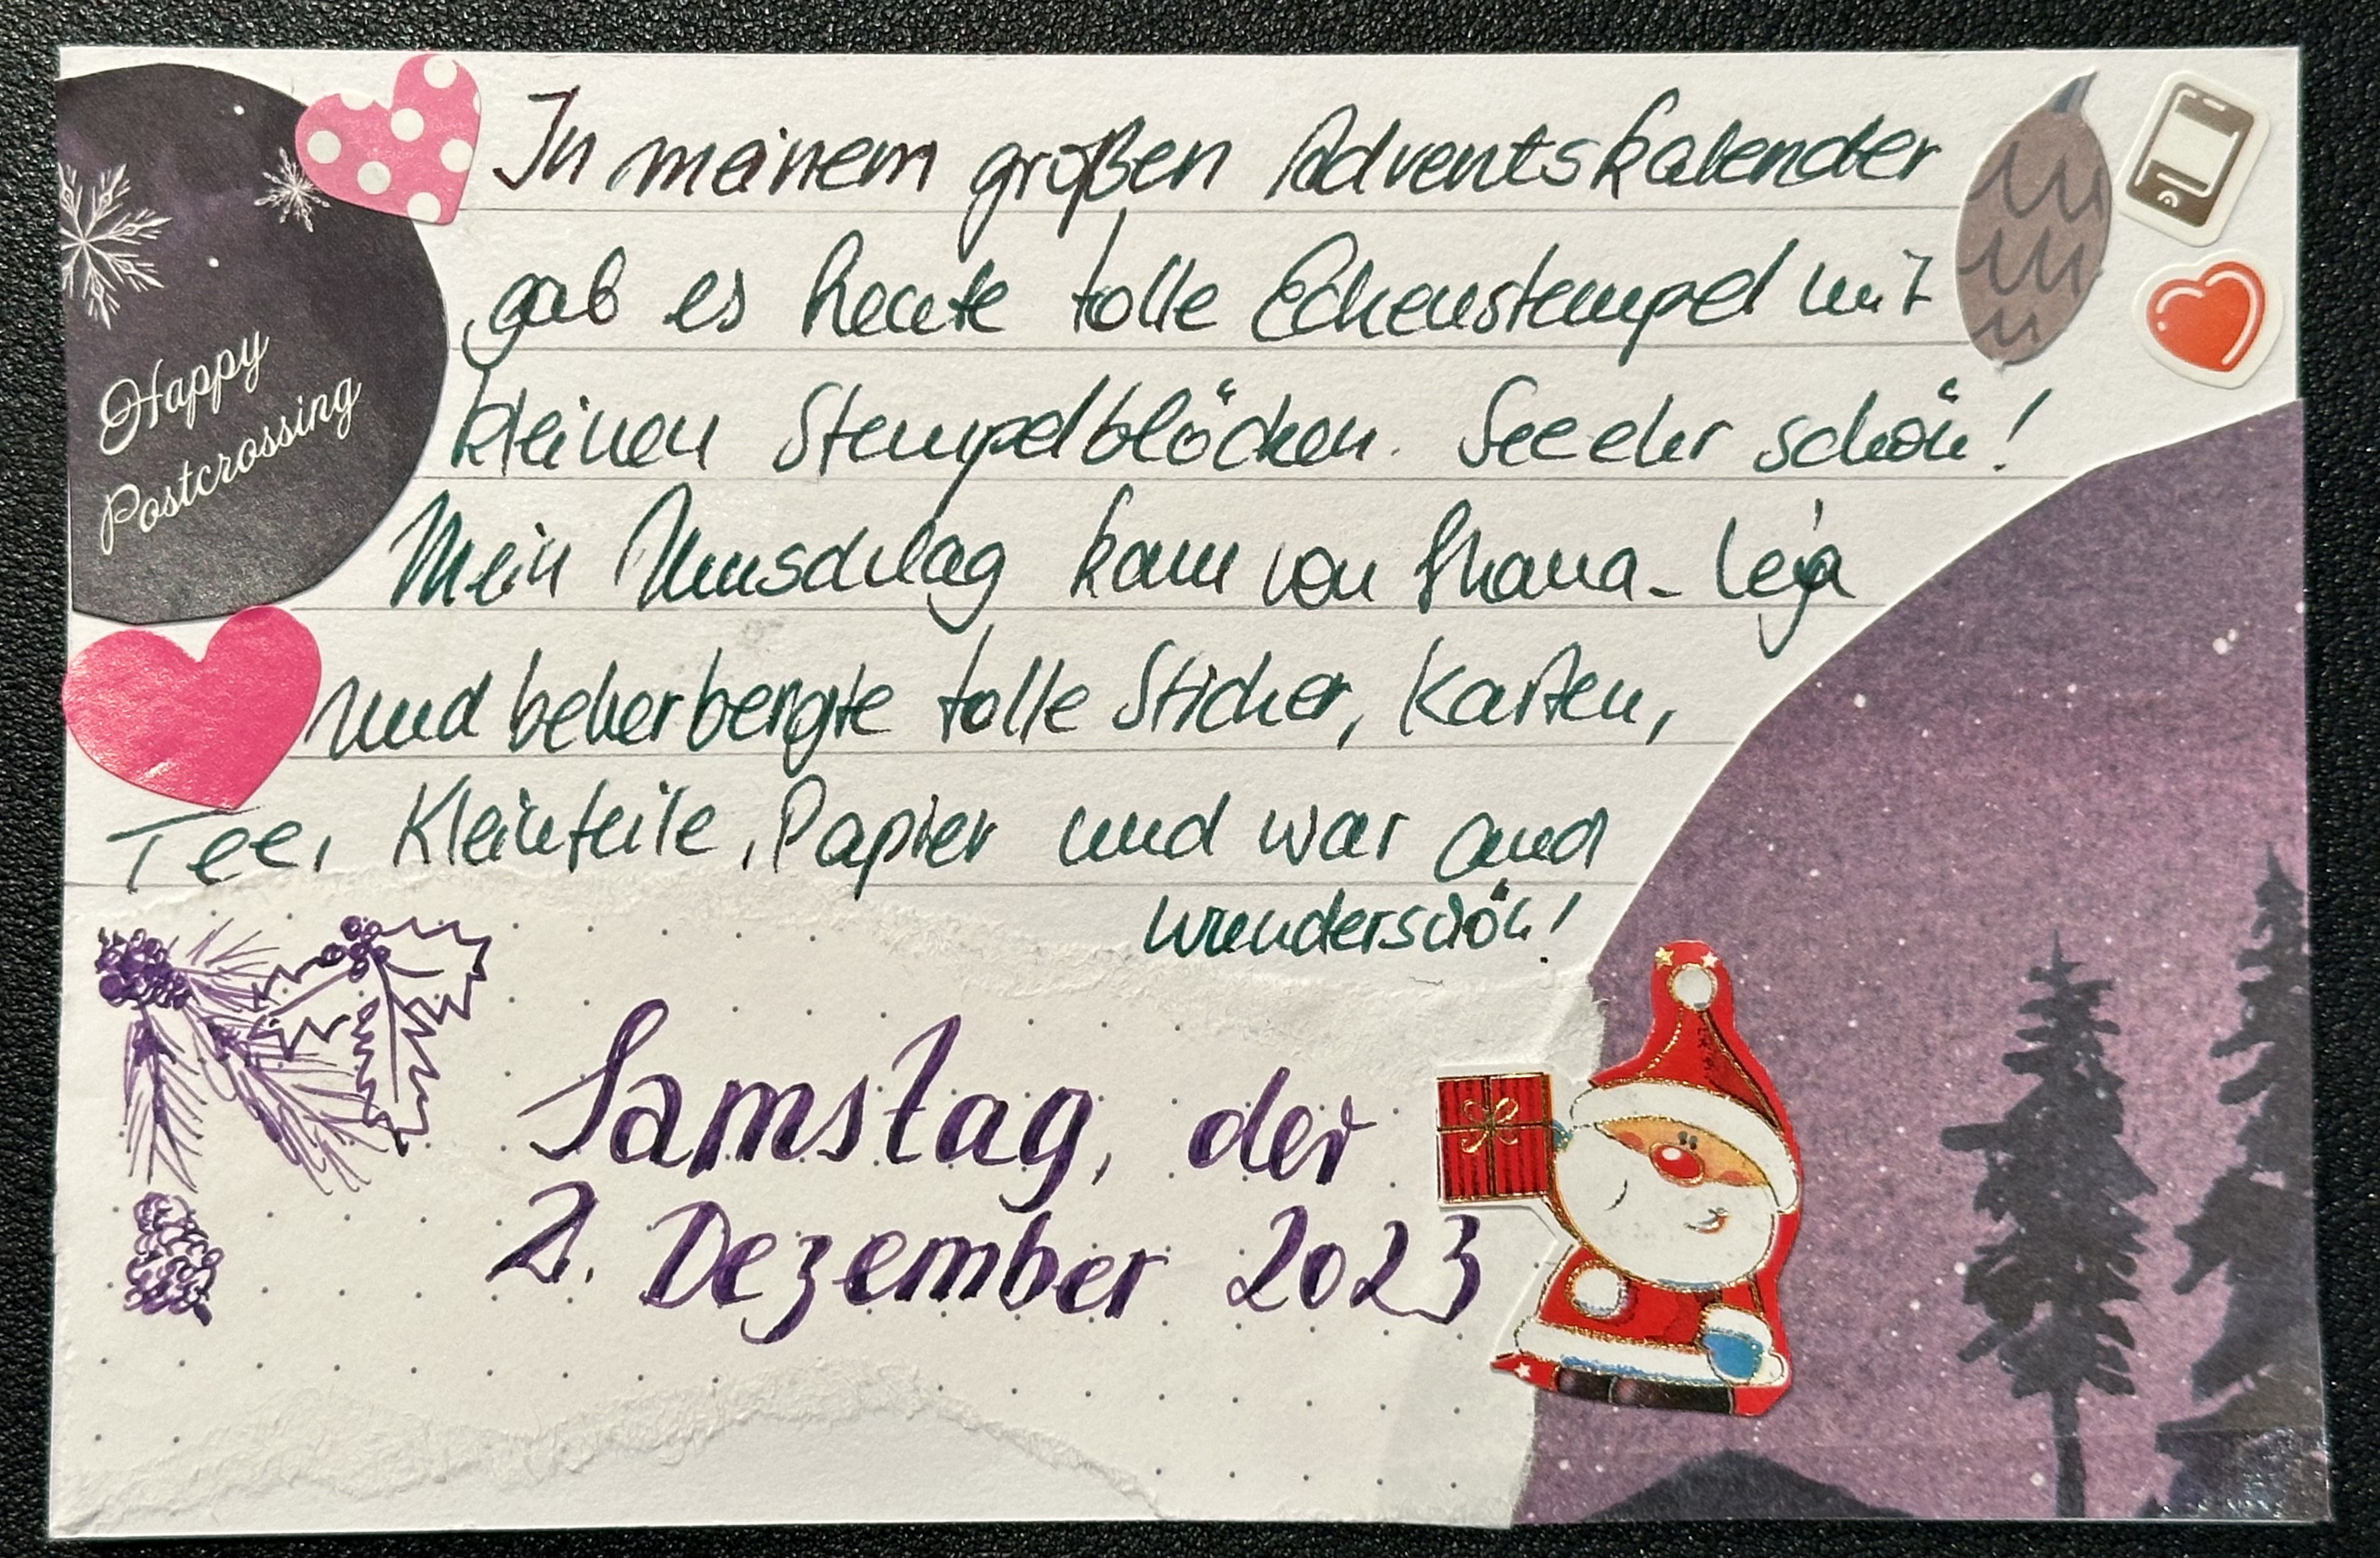 Happy
Postcrossing
In meinem großen Adventskalender
gab es heute tolle Eckenstempel mit
kleinen Stempelblöcken. Seeehr schön!
Mein Umschlag kam von Shana-Leja
und beherbergte tolle Sticker, Karten,
Tee, Kleinteile, Papier und war auch
wunderschön!
Samstag, der
2. Dezember 2023